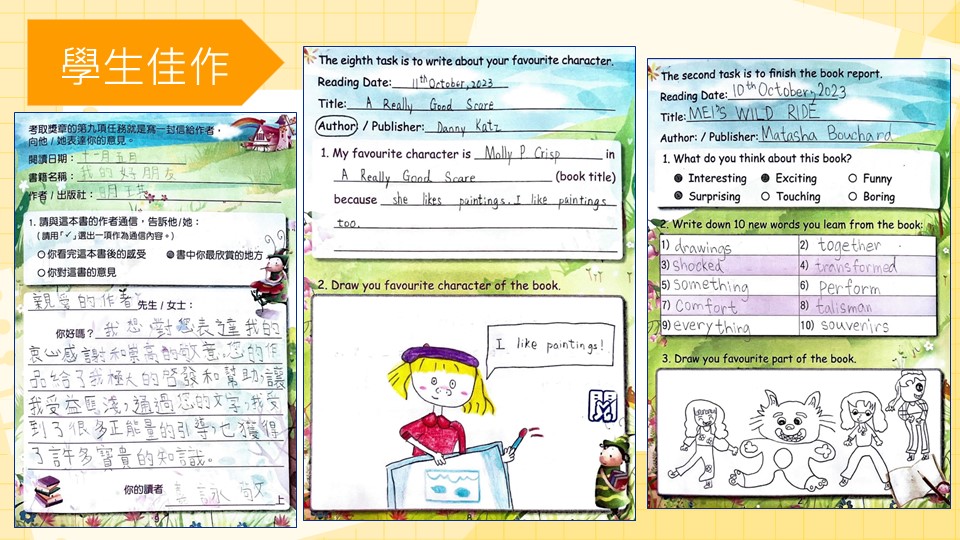 學生佳作
考取獎章的第九項任務就是寫一封信給作者,
向他 / 她表達你的意見。
閱讀日期: 十一月五月
書籍名稱: 我的好朋友
作者 / 出版社:
1. 請與這本書的作者通信,告訴他/她:
(請用「✓」選出一項作為通信內容。)
你看完這本書後的感受 書中你最欣賞的地方
你對這書的意見
親愛的作者 先生 / 女士:
你好嗎? 我想對您表達我的
衷心感謝和崇高的敬意,您的作
品給了我極大的啓發和幫助,讓
我受益匪淺,通過您的文字,我受
到了很多正能量的引導,也獲得
了許多寶貴的知識。
你的讀者
上
9
The eighth task is to write about your favourite character.
Reading Date: 11th October, 2023
Title: A Really Good Scare
Author: / Publisher: Danny Katz
1. My favourite character is Molly P. Crisp in
A Really Good Scare (book title)
because she likes paintings. I like paintings
too.
2. Draw you favourite character of the book.
I like paintings!
閱
8
The second task is to finish the book report.
Reading Date: 10th October, 2023
Title: MEI'S WILD RIDE
Author: / Publisher: Matasha Bouchard
1. What do you think about this book?
Interesting Exciting Funny
Surprising Touching Boring
2. Write down 10 new words you learn from the book:
1) drawings 2) together
3) shocked 4) transformed
5) something 6) perform
7) Comfort 8) talisman
9) everything 10) souvenirs
3. Draw you favourite part of the book.
2